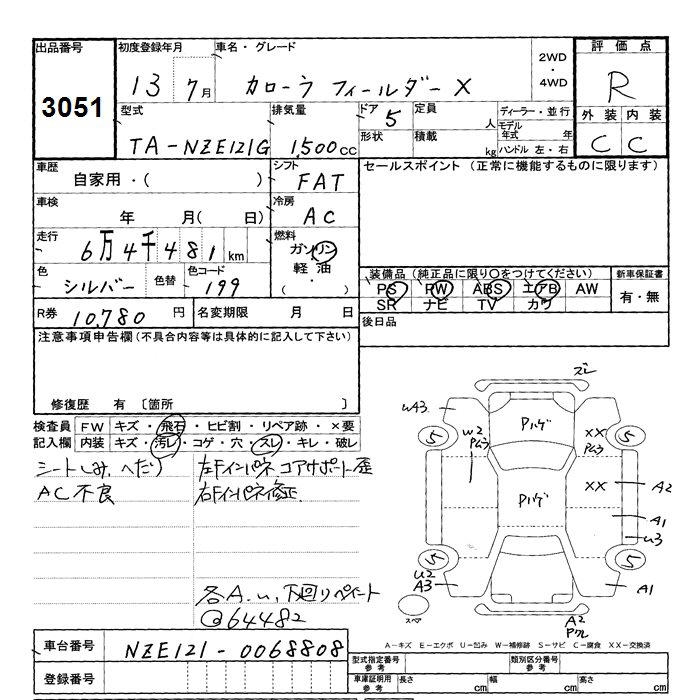 出品番号 初度登録年月 車名・グレード 2WD・4WD 評価点
3051 13 7月 カローラ フィールダー X R
型式 排気量 ドア 5 定員 人 ディーラー・並行 外装 内装
TA-NZE121G 1,500cc 形状 積載 kg モデル年式 年 ハンドル 左・右 C C
車歴 シフト セールスポイント (正常に機能するものに限ります)
自家用・( ) FAT
車検 冷房
年 月( 日) AC
走行 燃料
6万4千481km ガソリン
色 色替 色コード 軽油
シルバー 199 ・( )
装備品(純正品に限り○をつけてください) 新車保証書
PS PW ABS エアB AW 有・無
SR ナビ TV カワ
R券 10,780 円 名変期限 月 日 後日品
注意事項申告欄(不具合内容等は具体的に記入して下さい)
修復歴 有 〔箇所 〕
検査員 FW キズ・飛石・ヒビ割・リペア跡・×要
記入欄 内装 キズ・汚レ・コゲ・穴・スレ・キレ・破レ
シートしみ、へたり 左Fインパネ コアサポート歪
AC不良 右Fインパネ修正
各A.U, 下回りペイント
@64482
ズレ
UA3 Pハゲ XX Pムラ
5 5
W2 Pムラ Pハゲ XX A2
A1
U3
5 5
U2 A3 A1
スペア A2
A-キズ E-エクボ U-凹み W-補修跡 S-サビ C-腐食 XX-交換済
車台番号 NZE121-0068808
登録番号
型式指定番号 参考 類別区分番号 参考
車庫証明用 参考 長さ cm 幅 cm 高さ cm